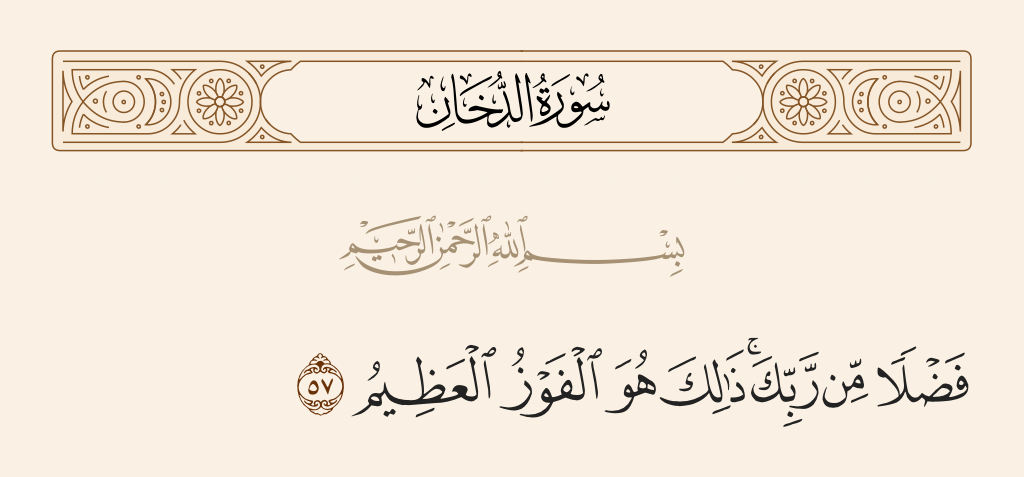 سُورَةُ الدُّخَانِ
بِسْمِ ٱللَّهِ ٱلرَّحْمَٰنِ ٱلرَّحِيمِ
فَضْلًا مِّن رَّبِّكَ ۚ ذَٰلِكَ هُوَ ٱلْفَوْزُ ٱلْعَظِيمُ ٥٧